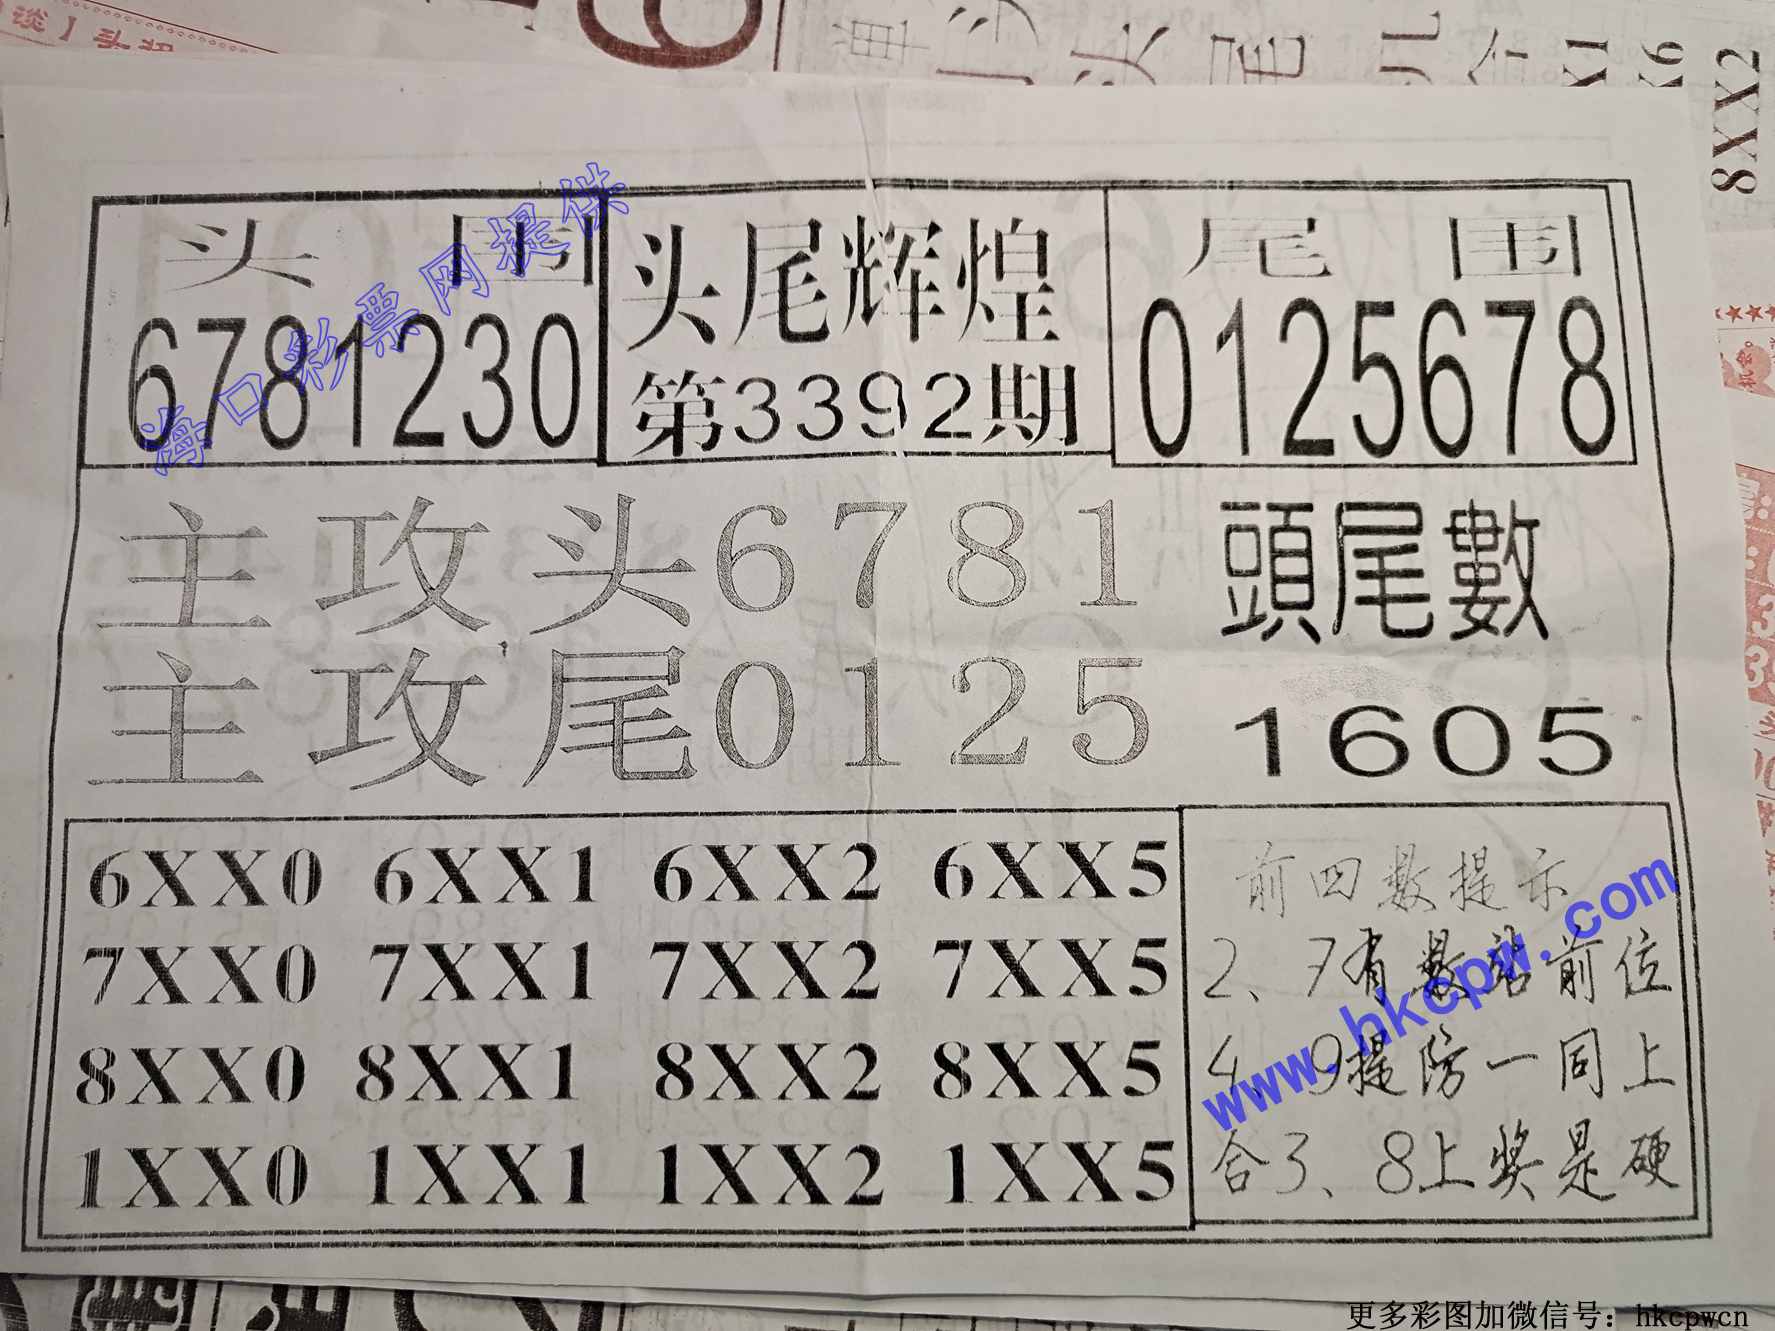 谈】
8XX2
头 围
6781230
头尾辉煌
第3392期
尾 围
0125678
海口彩票网提供
主攻头6781
主攻尾0125
頭尾數
1605
6XX0 6XX1 6XX2 6XX5
7XX0 7XX1 7XX2 7XX5
8XX0 8XX1 8XX2 8XX5
1XX0 1XX1 1XX2 1XX5
前四数提示
2、7有数站前位
4、9提防一同上
合3、8上奖是硬
www.hkcpw.com
更多彩图加微信号：hkcpwcn